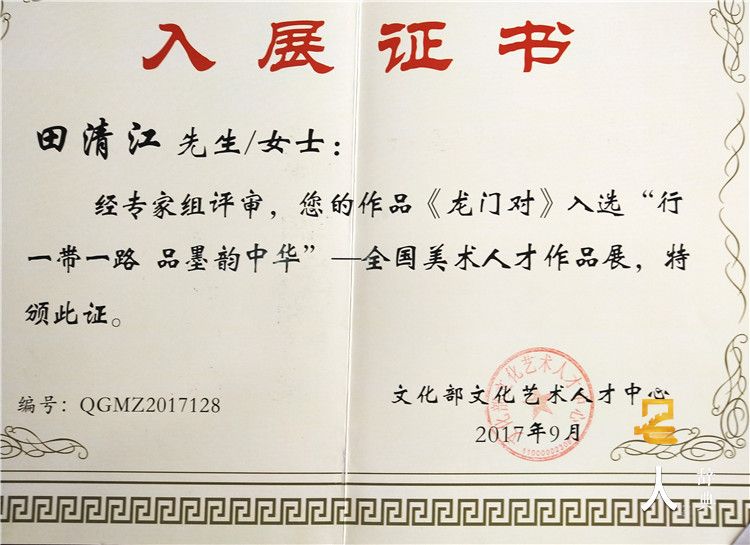 入展证书
田清江 先生/女士：
经专家组评审，您的作品《龙门对》入选“行
一带一路 品墨韵中华”—全国美术人才作品展，特
颁此证。
编号：QGMZ2017128
文化部文化艺术人才中心
2017年9月
人
辞典